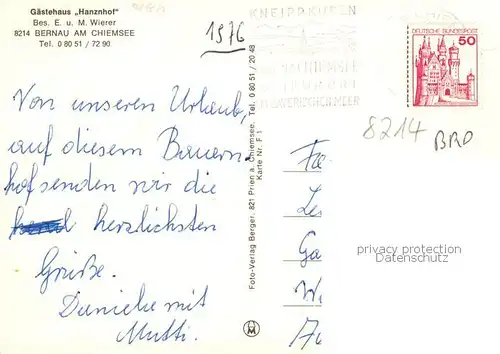 Gästehaus „Hanznhof"
Bes. E. u. M. Wierer
8214 BERNAU AM CHIEMSEE
Tel. 0 80 51 / 72 90
1976
KNEIPPKUREN
DEUTSCHE BUNDESPOST
50
8214
BRD
Von unseren Urlaub,
auf diesem Bauern-
hof senden wir die
herzlichsten
Grüße.
Daniele mit
Mutti.
Foto-Verlag Berger, 821 Prien a. Chiemsee, Tel. 0 80 51 / 20 48
Karte Nr. F 1
Fa
Le
Ga
W
privacy protection
Datenschutz